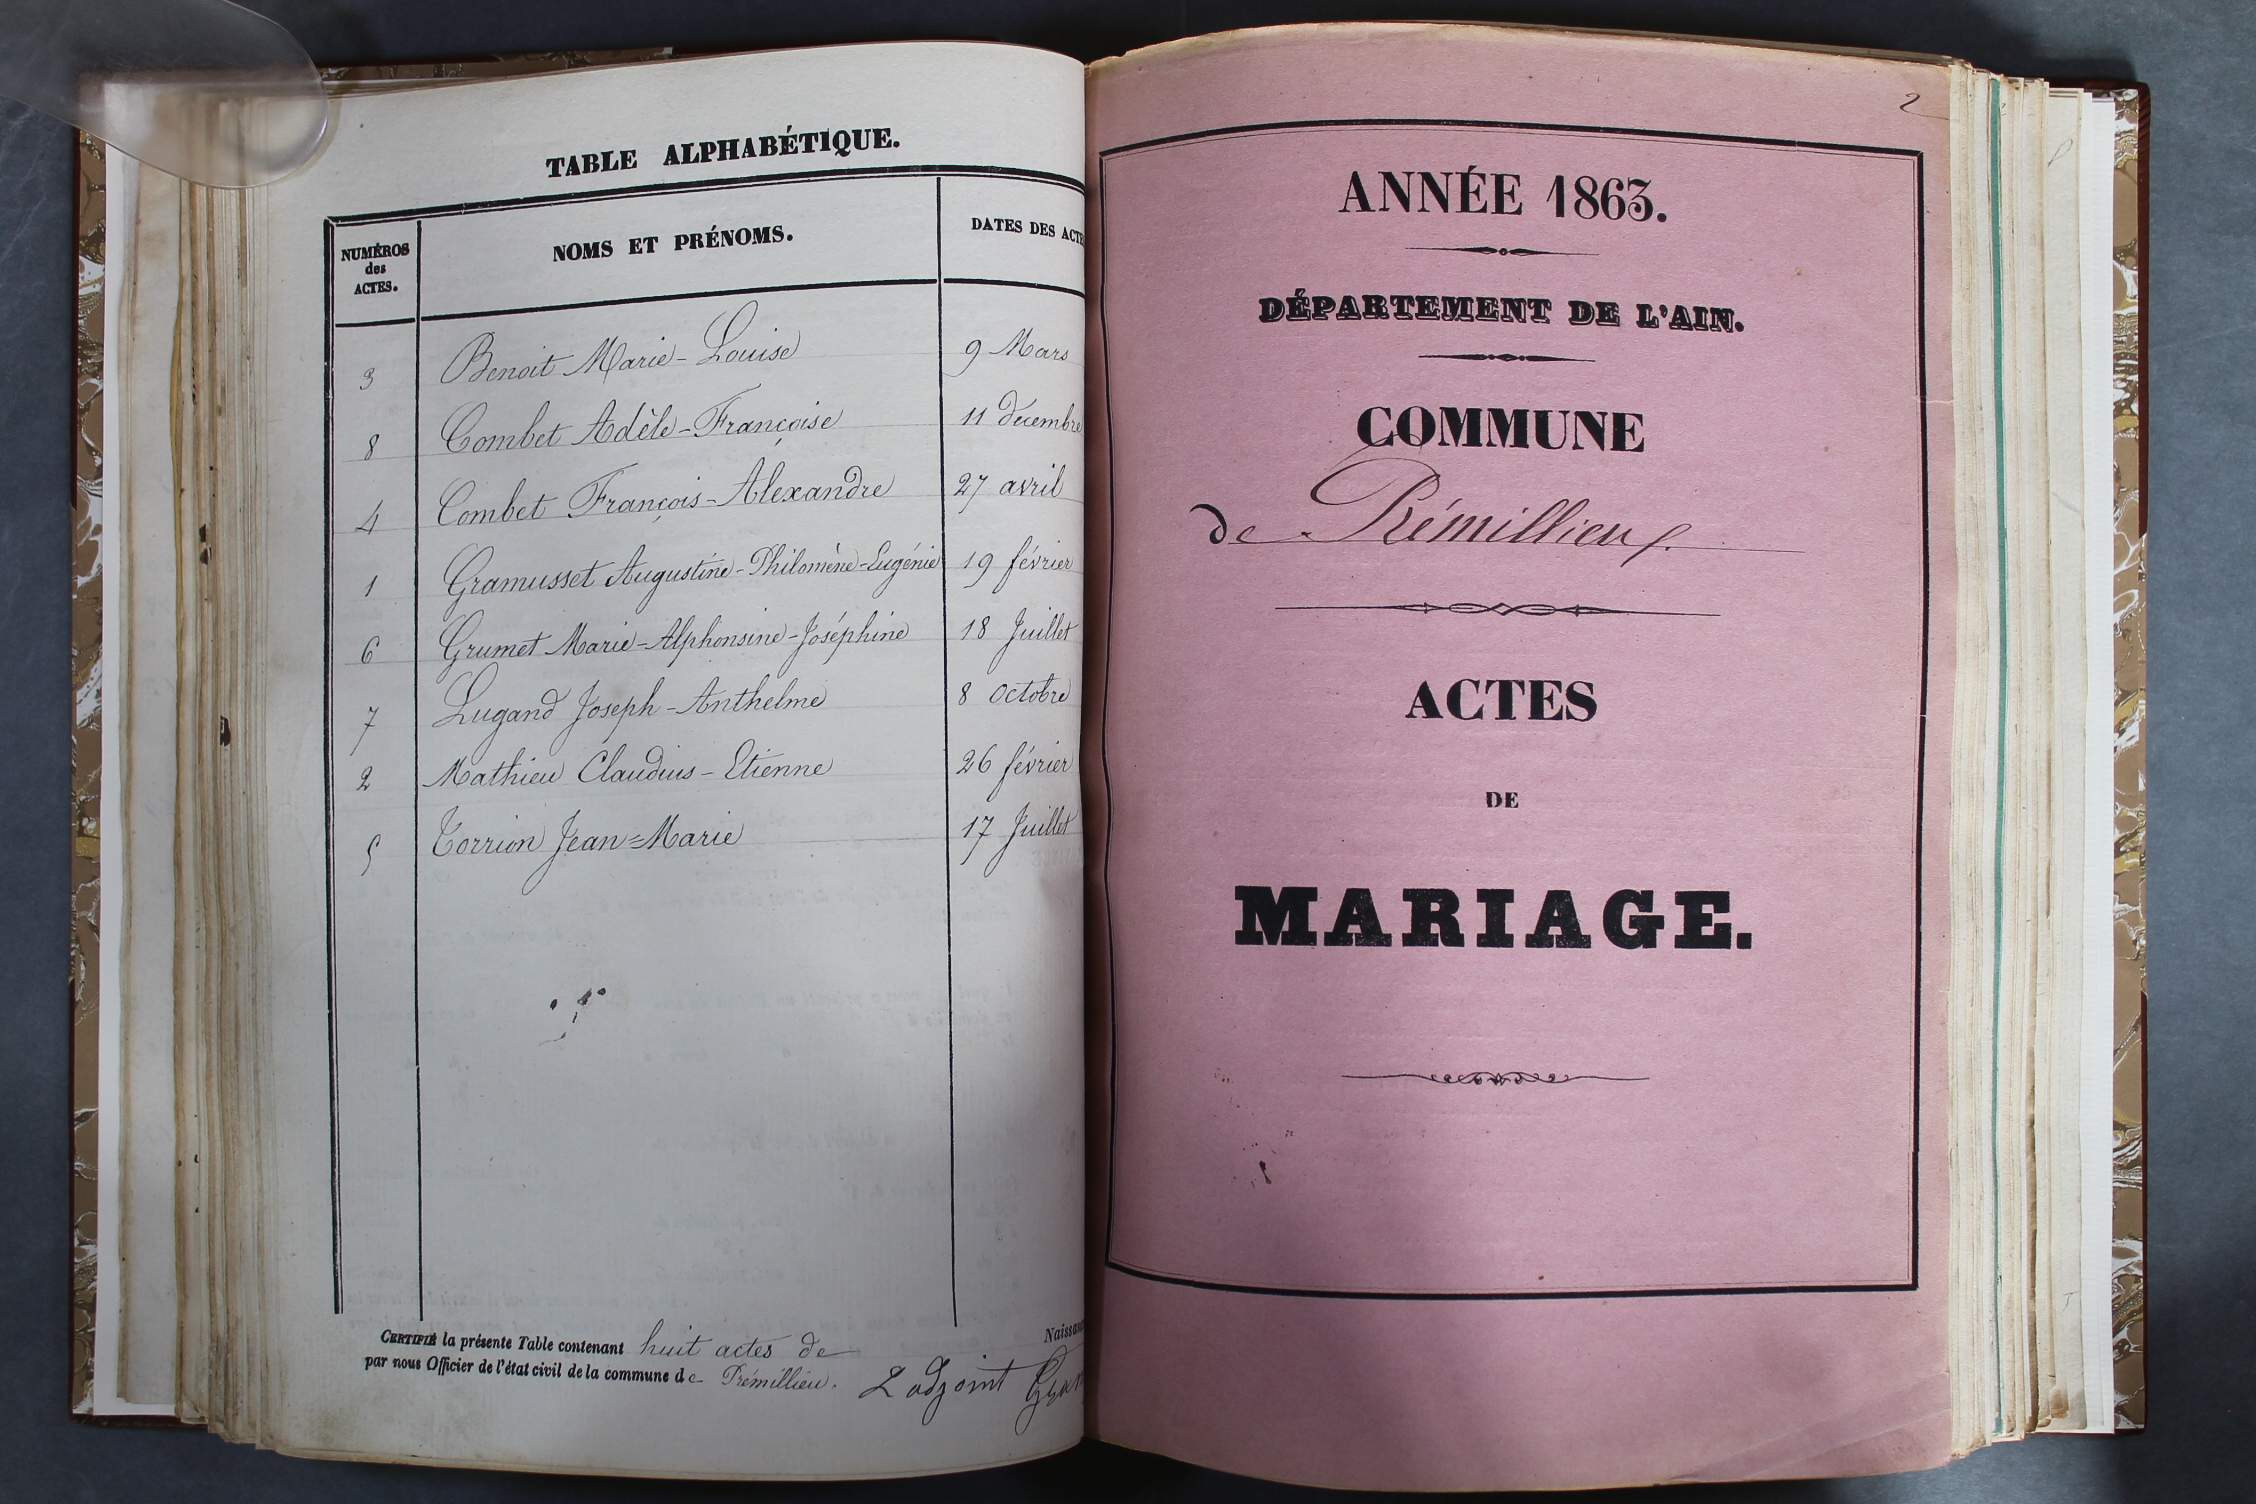 TABLE ALPHABÉTIQUE.
NUMÉROS
des
ACTES.
NOMS ET PRÉNOMS.
DATES DES ACTE
3 Benoit Marie-Louise 9 Mars
8 Combet Adèle-Françoise 11 decembre
4 Combet François-Alexandre 27 avril
1 Gramusset Augustine-Philomène-Eugénie 19 février
6 Grumet Marie-Alphonsine-Joséphine 18 Juillet
7 Lugand Joseph-Anthelme 8 Octobre
2 Mathieu Claudius-Etienne 26 février
5 Torrion Jean=Marie 17 Juillet
CERTIFIÉ la présente Table contenant huit actes de Naissan
par nous Officier de l'état civil de la commune de Prémillieu.
L adjoint
2
ANNÉE 1863.
DÉPARTEMENT DE L'AIN.
COMMUNE
de Prémillieux.
ACTES
DE
MARIAGE.